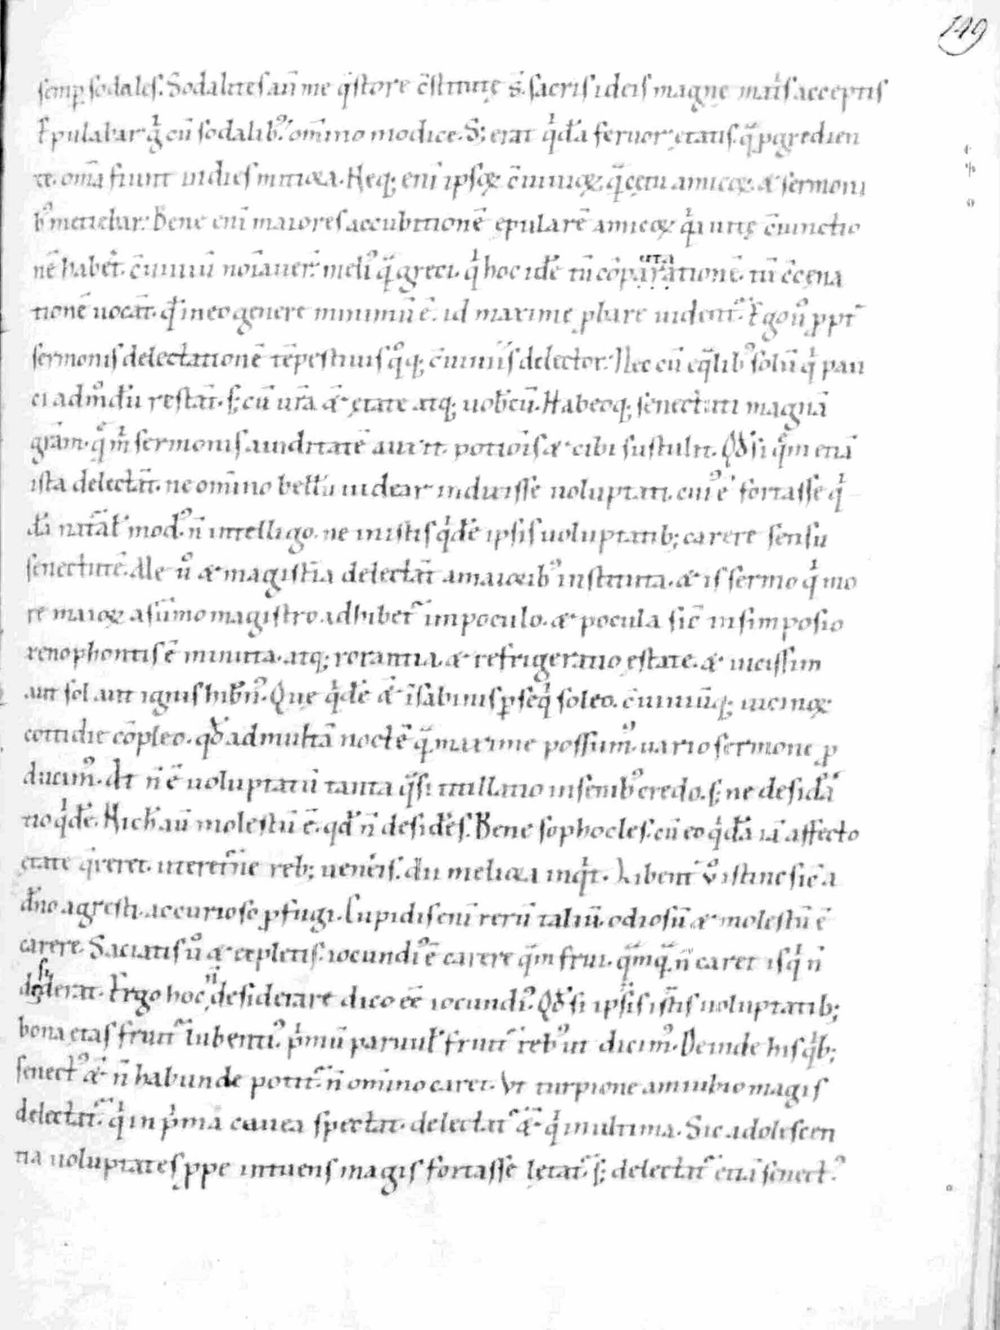 149
semꝑ sodales. Sodalites aū me q̄store c̄stitutę s̄. sacris ideis magnę mat̄s acceptis
Epulabar ḡ cū sodalib᷒ om̄ino modice. S; erat q̇dā feruor ętatis. q̄ ꝓgredien
te. om̄a fiunt indies mitiora. Neq; eni ipsoꝝ c̄uiuioꝝ. q̄ cętu amicoꝝ. & sermoni
b᷒ metiebar. Bene eni maiores accubitionē epularē amicoꝝ q̇a uitę c̄iunctio
nē habet̄. c̄uiuiū noīauer̄. meli᷒ q̄ greci. q̇ hoc idē tū cōparationē. tū c̄cena
ta
tionē uocāt. qd̄ in eo genere minimū ē. id maxime ꝓbare uident̄. Ego u͛ ꝓpt̄
sermonis delectationē tēpestiuis q͛q; c̄uiuiis delector. Nec cū eq̄lib᷒ solū q̇ pau
ci admodū restāt. s; cū ur̄a ā ętate atq; uob̄cū. Habeoq; senectuti magnā
gr̄am. q̄ m̄ sermonis auiditatē auxit. potiois & cibi sustulit. Qd̄ si q̄m etiā
ista delectāt. ne om̄ino bellū uidear induxisse uoluptati. cui᷒ ē fortasse q̇
dā nat̄al̄ mod᷒. n̄ intelligo. ne in istis q̇dē ipsis uoluptatib; carere sensu
senectutē. Me u͛ & magist̄ia delectāt a maiorib᷒ instituta. & is sermo q̇ mo
re maioꝝ a sūmo magistro adhibet̄ in poculo. & pocula sic̄ in simposio
xenophontis ē minuta. atq; rorantia. & refrigeratio ęstate. & uicissim
aut sol aut ignis hib̄n᷒. Que q̇dē ā in sabinis ꝑseq̇ soleo. c̄uiuiūq; uicinoꝝ
cottidie cōpleo. qd̄ ad multā noctē q̄ maxime possum᷒ uario sermone ꝓ
ducim᷒. At n̄ ē uoluptatū tanta q̄si titillatio in senib᷒ credo. s; ne desidā
tio q̇dē. Nich̄ aū molestū ē. qd̄ n̄ desidēs. Bene sophocles. cū eo q̇dā iā affecto
ętate q̄reret. uteret̄ne reb; uen̄eis. dii meliora inq̇t. Libent̄ u͛ istinc sic̄ a
dn̄o agresti. ac curioso ꝓfugi. Cupidis eni rerū taliū. odiosū & molestū ē
carere. Saciatis u͛ & expletis. iocundi᷒ ē carere q̄m frui. q̄mq̄ n̄ caret is q̇ n̄
desiderat. Ergo hoc n̄ desiderare dico eē iocundi᷒. Qd̄ si ipsis istis uoluptatib;
bona ętas fruit̄ lubenti᷒. p̄mū paruul̄ fruit̄ reb᷒ ut dicim᷒. Deinde his q̄b;
senect᷒ ā n̄ habunde potit̄. n̄ om̄ino caret. Vt turpione ambiuio magis
delectat̄. q̇ in p̄ma cauea spectat. delectat̄ ā q̇ in ultima. Sic adolescen
tia uoluptates ꝓpe intuens magis fortasse lętat̄. s; delectat̄ etiā senect᷒.